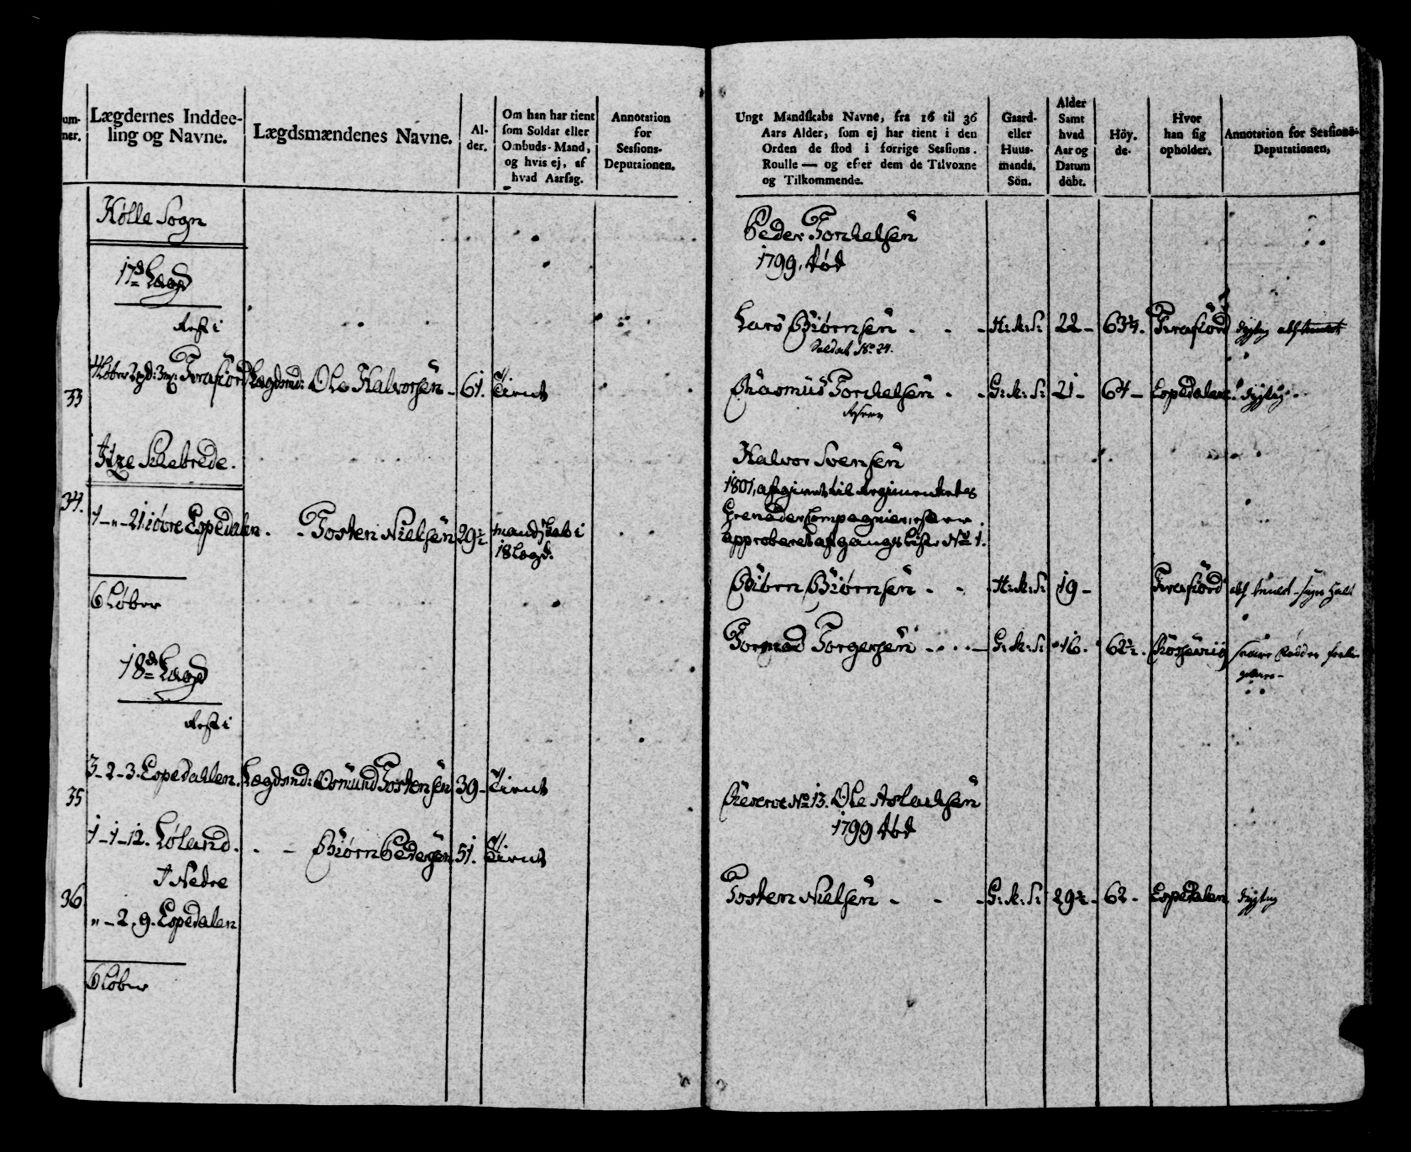 um-
ner.
Lægdernes Inddee-
ling og Navne.
Lægdsmændenes Navne.
Al-
der.
Om han har tient
som Soldat eller
Ombuds-Mand,
og hvis ej, af
hvad Aarsag.
Annotation
for
Sessions-
Deputationen.
Hølle Sogn
17de Lægd
Rest i
33
Frafiörd Lægdsmd: Ole Halvorsen - 61. Tient
Ytre Skebrede.
34.
1 - " - 21 i övre Espedalen. - Tosten Nielsen 29½ mandskab i
18 Lægd.
6 Løber
18de Lægd
Rest i
35
3 - 2 - 3. Espedalen. Lægdsmd: Osmund Tostensen 39 - Tient
1 - 1 - 12. Løland. - Biörn Pedersen 51. Tient
I Nedre
36
" - 2. 9. Espedalen
6 Løber
Ungt Mandskabs Navne, fra 16 til 36
Aars Alder, som ej har tient i den
Orden de stod i forrige Sessions-
Roulle — og efter dem de Tilvoxne
og Tilkommende.
Gaard-
eller
Huus-
mands-
Sön.
Alder
Samt
hvad
Aar og
Datum
döbt.
Höy-
de.
Hvor
han sig
opholder.
Annotation for Sessions-
Deputationen.
Peder Torkelsen
1799. död
Lars Biörnsen . - - H: M: S: 22 - 63¼. Frafiörd dygtig
Soldat No 24.
Rasmus Torkelsen . - G: M: S: 21 - 64 - Espedalen. dygtig
Halvor Svensen
1801, afgivet til Regimentets
Grenadeer Compagnie
approberet afgangs Liste No 1.
Biörn Biörnsen . - H: M: S: 19 - Frafiörd
Tormod Torgersen - . . . - G: M: S: 16. 62½.
Reserve No 13. Ole Aslaksen
1799 död
Tosten Nielsen - - - G: M: S: 29½ - 62 - Espedalen dygtig